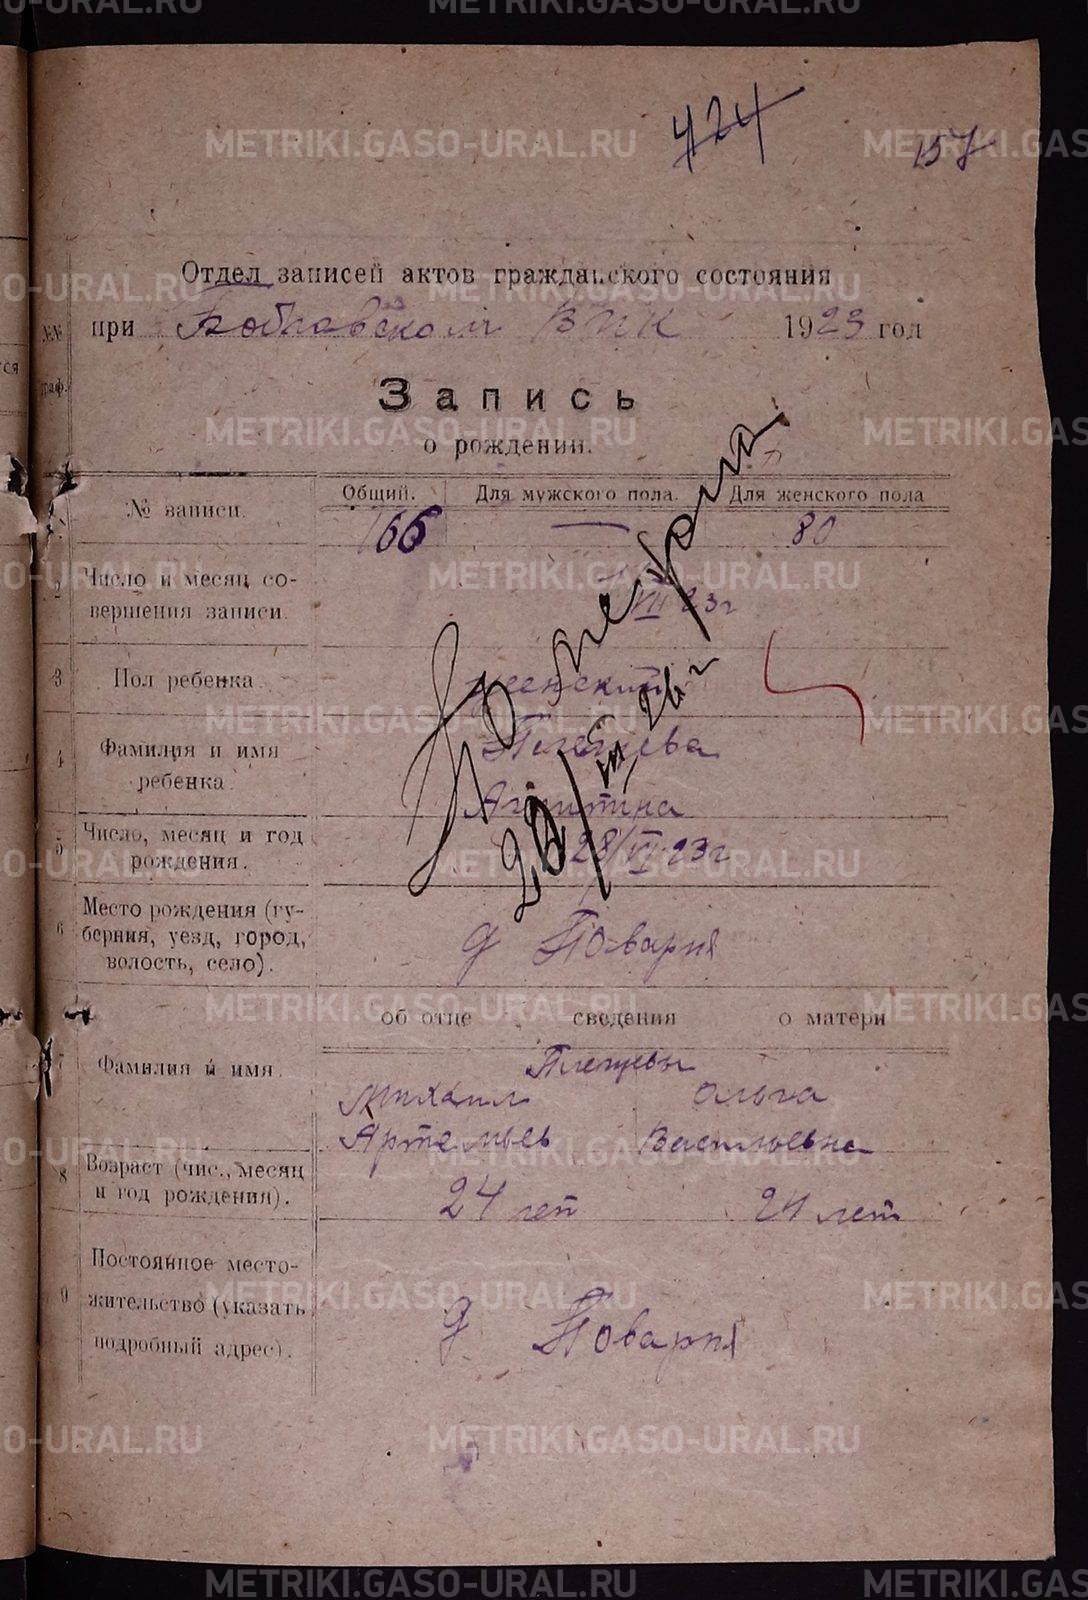 424
157
Отдел записей актов гражданского состояния
при ВИК 1923 год
Запись
о рождении.
№№ граф.
Общий. Для мужского пола. Для женского пола
1 № записи. 166 — 80
2 Число и месяц со-
вершения записи. VII 23 г
3 Пол ребенка женский
4 Фамилия и имя
ребенка
5 Число, месяц и год
рождения. 28/VI 23 г
6 Место рождения (гу-
берния, уезд, город,
волость, село). д Поварня
об отце сведения о матери
7 Фамилия и имя Плещевы
Михаил Ольга
Артемьев Васильевна
8 Возраст (чис., месяц
и год рождения). 24 лет 24 лет
9 Постоянное место-
жительство (указать
подробный адрес). д Поварня
METRIKI.GASO-URAL.RU